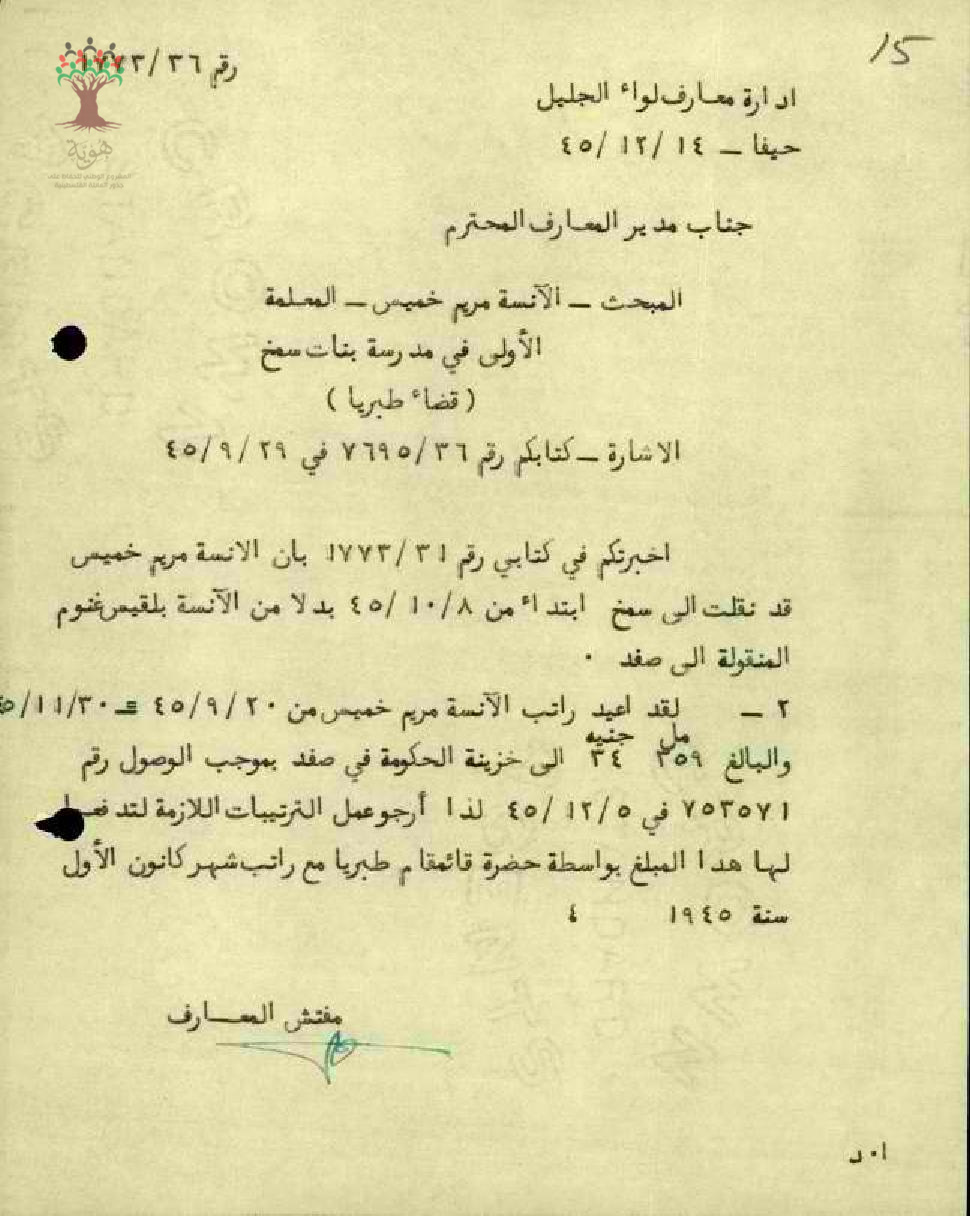 15
رقم ١٧٧٣/٣٦
هوية
ادارة معارف لواء الجليل
حيفا — ١٤ /١٢ /٤٥
جناب مدير المعارف المحترم
المبحث — الآنسة مريم خميس — المعلمة
الأولى في مدرسة بنات سمخ
( قضاء طبريا )
الاشارة — كتابكم رقم ٧٦٩٥/٣٦ في ٢٩ /٩ /٤٥
اخبرتكم في كتابي رقم ١٧٧٣/٣١ بان الانسة مريم خميس
قد نقلت الى سمخ ابتداء من ٨/ ١٠/ ٤٥ بدلا من الآنسة بلقيس غنوم
المنقولة الى صفد ٠
٢ — لقد اعيد راتب الآنسة مريم خميس من ٢٠ /٩ /٤٥ = ٣٠/ ١١/
مل جنيه
والبالغ ٣٥٩ ٣٤ الى خزينة الحكومة في صفد بموجب الوصول رقم
٧٥٣٥٧١ في ٥ /١٢ /٤٥ لذا أرجو عمل الترتيبات اللازمة لتدفعوا
لها هذا المبلغ بواسطة حضرة قائمقام طبريا مع راتب شهر كانون الأول
سنة ١٩٤٥ ٤
مفتش المعارف
ا٠د